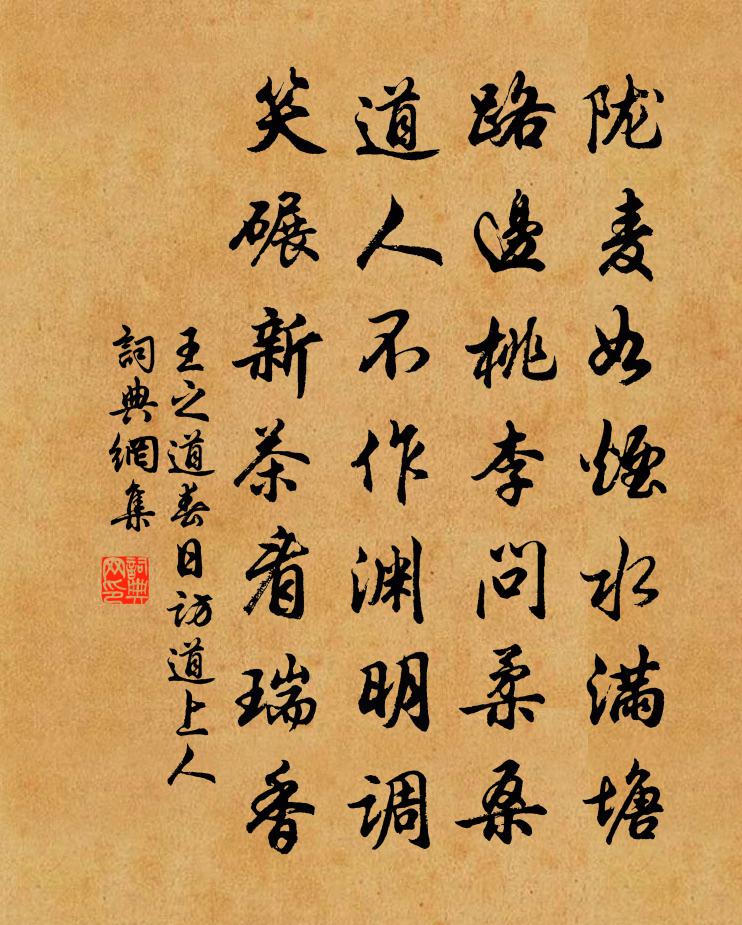 陇麦如烟水满塘
路邊桃李问柔桑
道人不作渊明调
笑碾新茶看瑞香
王之道春日访道上人
詞典網集
詞典
网印